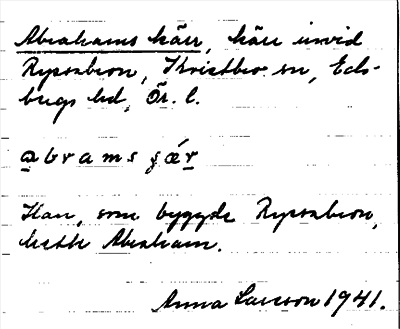 Abrahams kärr, kärr invid
Ryssabron, Kvistbro sn, Eds-
bergs hd, Ör. l.
abrams çǽr
Han, som byggde Ryssabron,
hette Abraham.
Anna Larsson 1941.